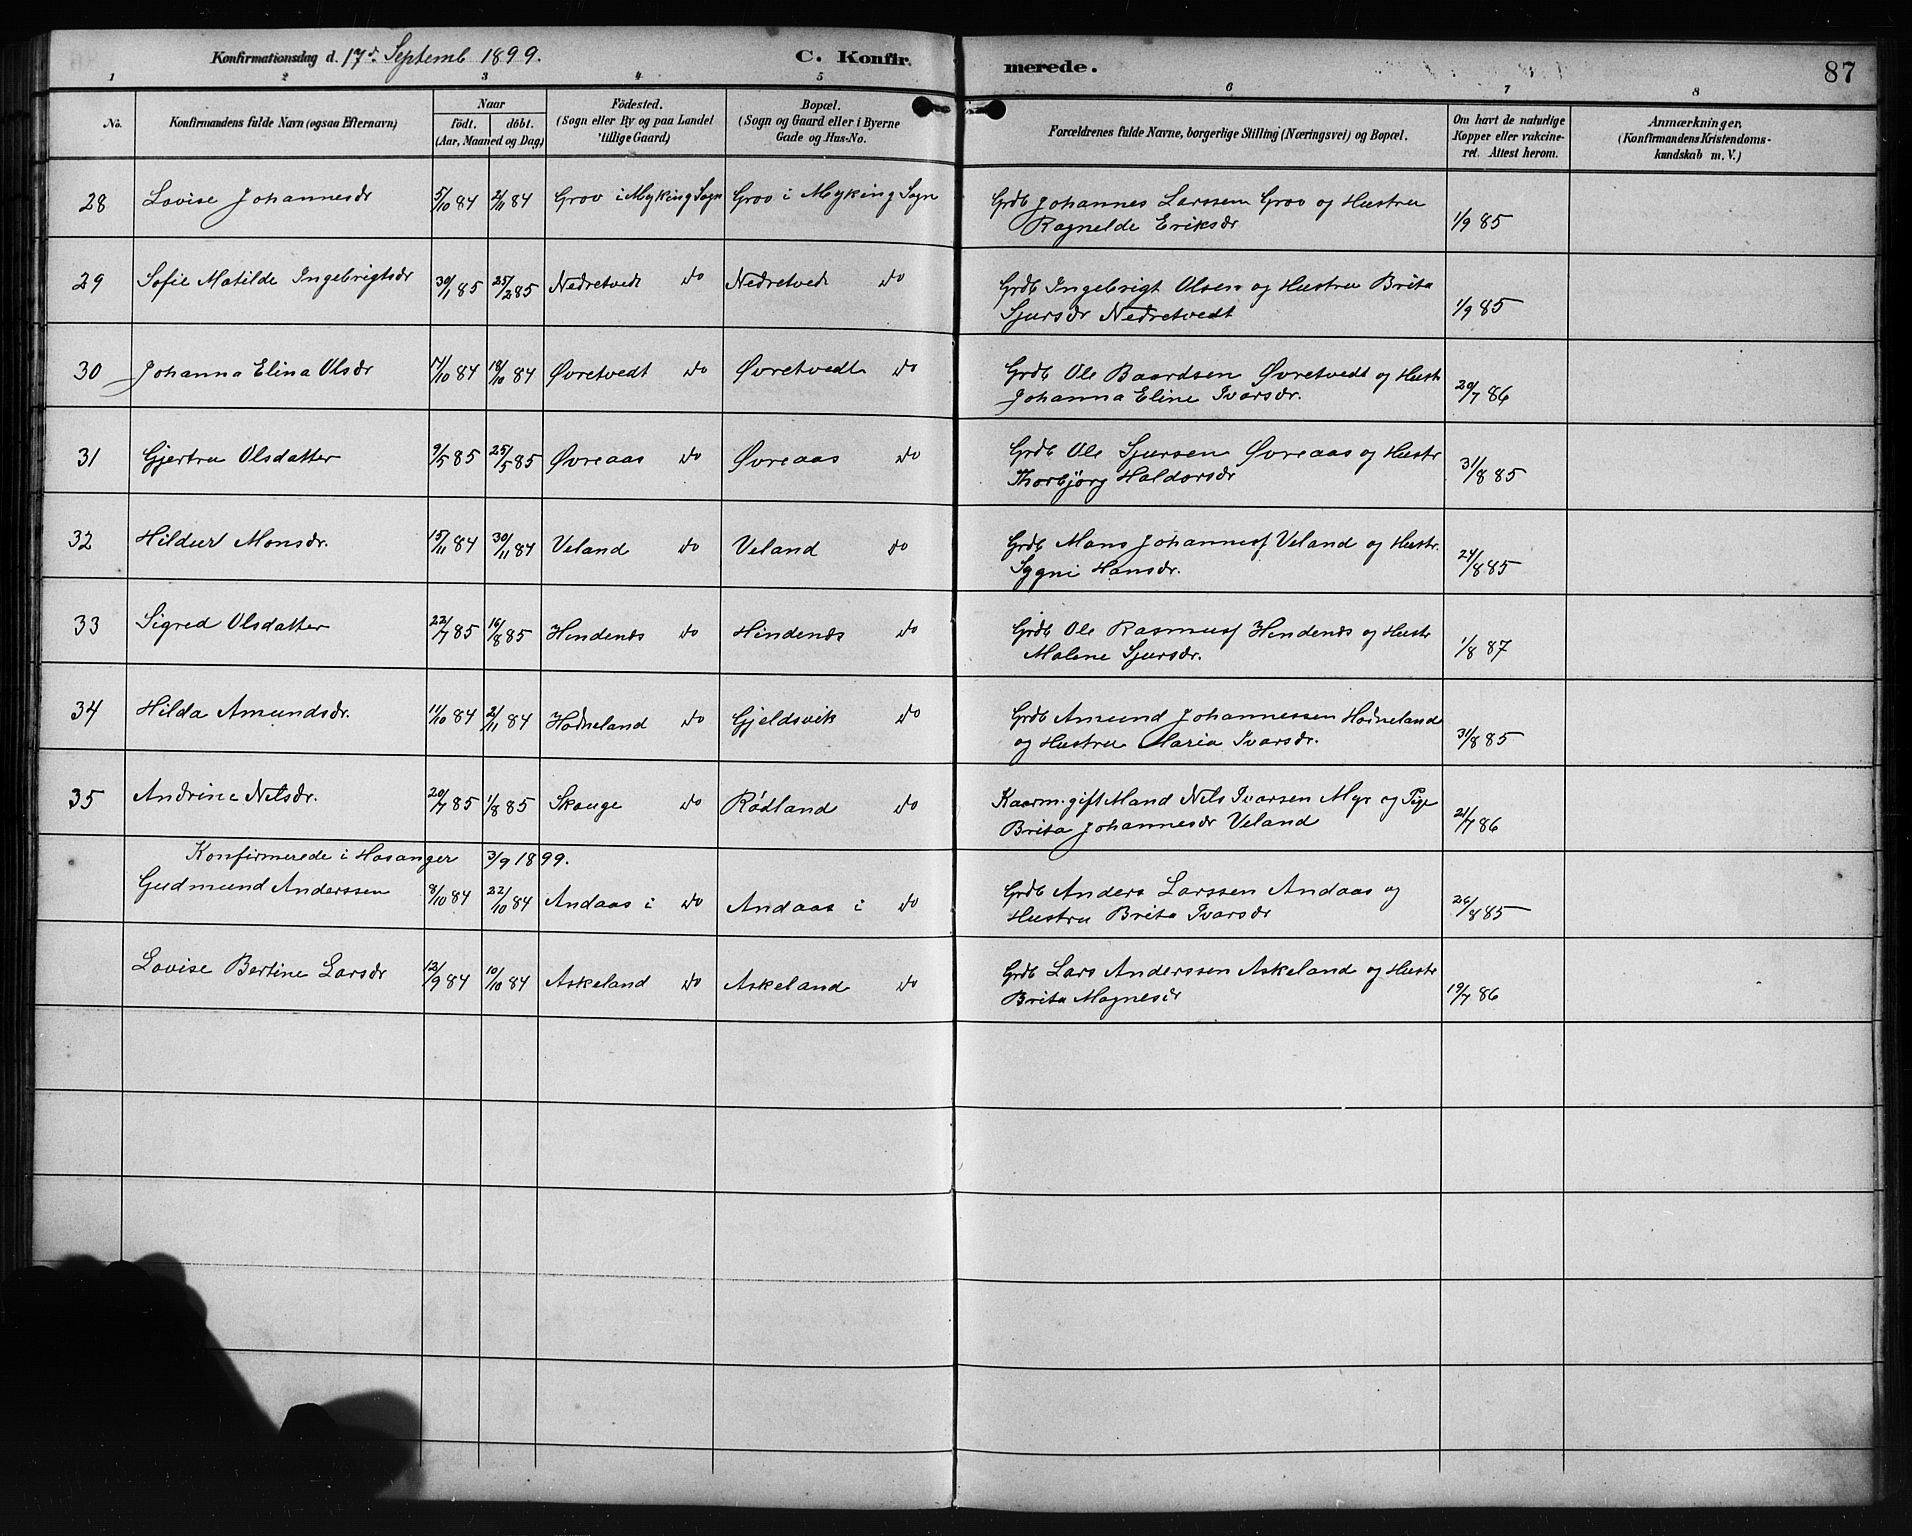 Konfirmationsdag d. 17de Septemb 1899. C. Konfirmerede. 87
1 2 3 4 5 6 7 8
No. Konfirmandens fulde Navn (ogsaa Efternavn) Naar Födt. döbt. (Aar, Maaned og Dag) Födested. (Sogn eller By og paa Landet tillige Gaard) Bopæl. (Sogn og Gaard eller i Byerne Gade og Hus-No. Forældrenes fulde Navne, borgerlige Stilling (Næringsvei) og Bopæl. Om havt de naturlige Kopper eller vakcineret. Attest herom. Anmærkninger, (Konfirmandens Kristendomskundskab m. V.)
28 Lovise Johannesdr 5/10 84 2/11 84 Grov i Myking Sogn Grov i Myking Sogn Grdb Johannes Larssen Grov og Hustru
Ragnelde Eriksdr 1/9 85
29 Sofie Matilde Ingebrigtsdr 30/1 85 25/2 85 Nedretvedt do Nedretvedt do Grdb Ingebrigt Olsen og Hustru Brita
Sjursdr Nedretvedt 1/9 85
30 Johanna Elina Olsdr 17/10 84 18/10 84 Øvretvedt do Øvretvedt do Grdb Ole Baardsen Øvretvedt og Hust
Johanna Eline Ivarsdr. 20/7 86
31 Gjertru Olsdatter 9/5 85 25/5 85 Øvreaas do Øvreaas do Grdb Ole Sjursen Øvreaas og Hustr
Thorbjørg Haldorsdr 31/8 85
32 Hildur Monsdr. 15/11 84 30/11 84 Veland do Veland do Grdb Mons Johannesf Veland og Hustr.
Sygni Hansdr. 24/8 85
33 Sigred Olsdatter 22/7 85 16/8 85 Hindenes do Hindenes do Grdb Ole Rasmusf Hindenes og Hustr
Malene Sjursdr. 1/8 87
34 Hilda Amundsdr. 11/10 84 2/11 84 Hodneland do Gjeldsvik do Grdb Amund Johannessen Hodneland
og Hustru Maria Ivarsdr. 31/8 85
35 Andrine Nilsdr. 20/7 85 1/8 85 Skauge do Rödland do Kaarm. gift Mand Nils Ivarsen Myr og Pige
Brita Johannesdr Veland 21/7 86
Konfirmerede i Hosanger 3/9 1899.
Gudmund Anderssen 8/10 84 22/10 84 Andaas i do Andaas i do Grdb Anders Larssen Andaas og
Hustru Brita Ivarsdr 26/8 85
Lovise Bertine Larsdr 12/9 84 10/10 84 Askeland do Askeland do Grdb Lars Anderssen Askeland og Hustr
Brita Magnesdr 19/7 86